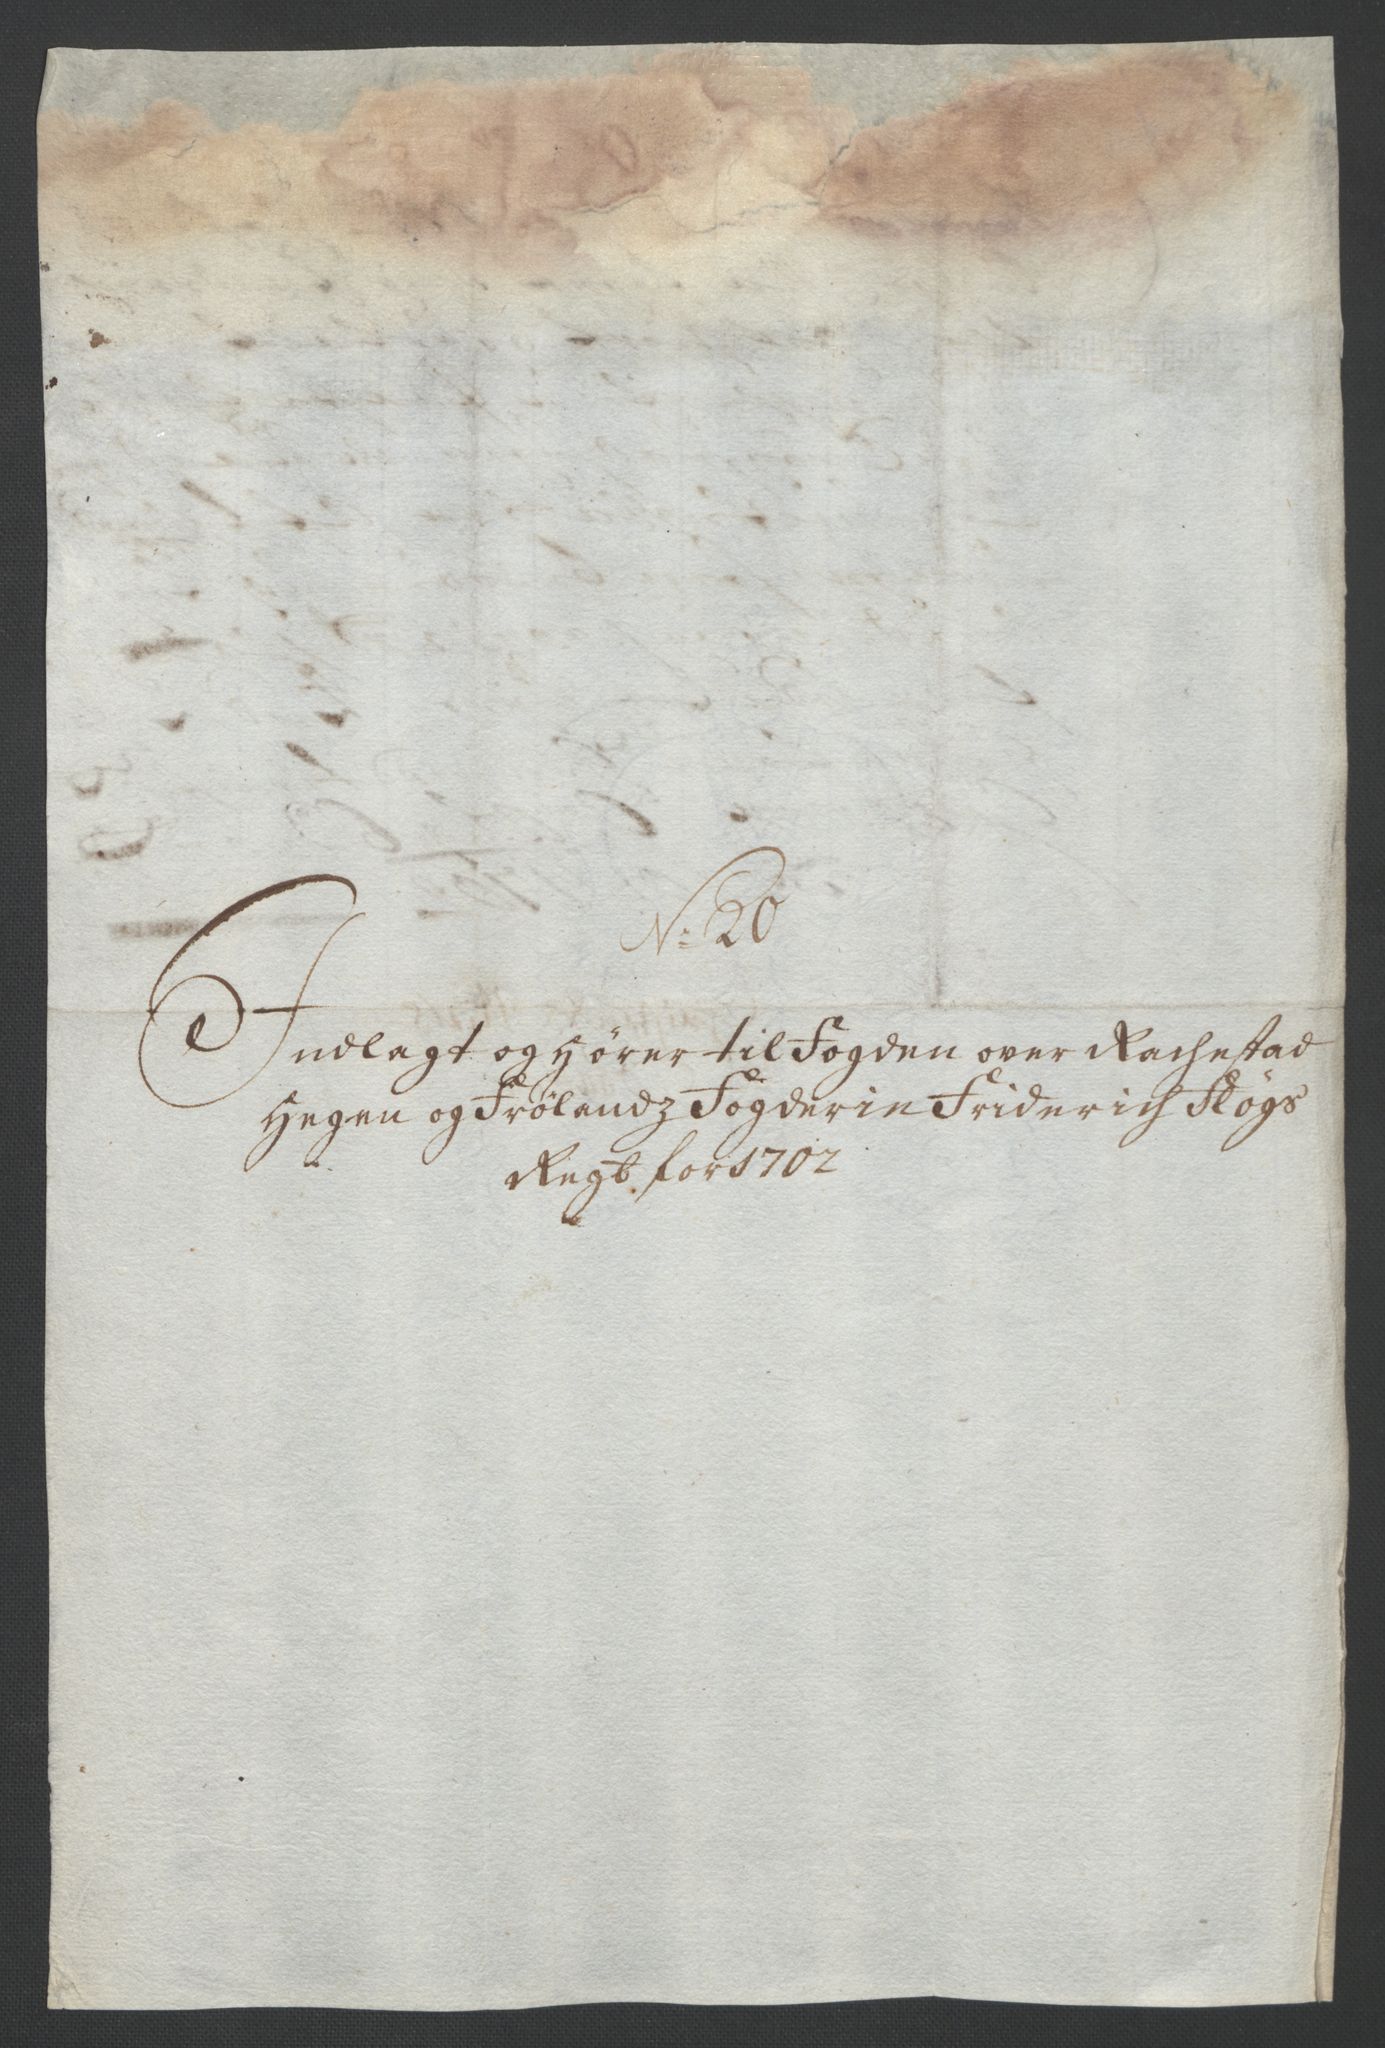 No: 20
Indlagt og hører til Fogden over Rachestad
Hegen og Frølandz Fogderie Friderich Fløgs
Regb. for 1702